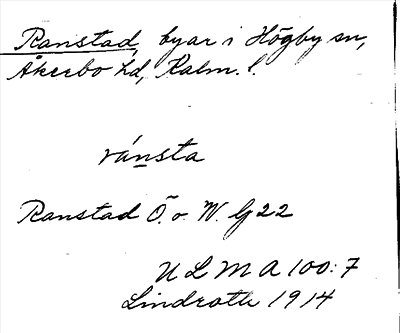 Ranstad, byar i Högby sn,
Åkerbo hd, Kalm. l.
ránsta
Ranstad Ö. o. W. G22
ULMA 100:7
Lindroth 1914